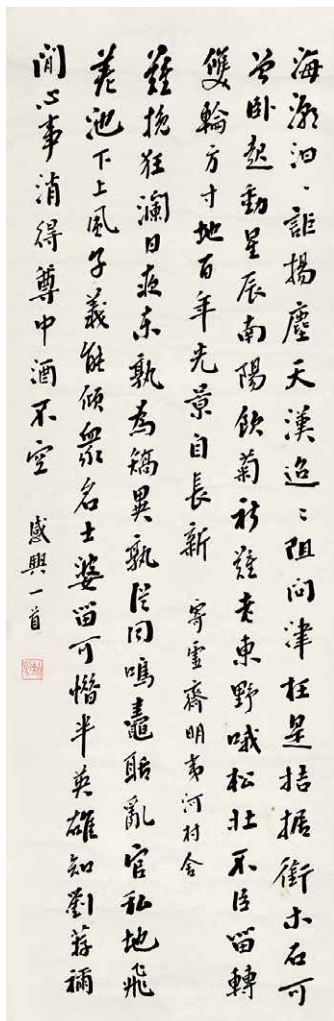 海潮汩、詎揚塵天漢迢、阻問津枉是拮据銜木石可
曾卧起動星辰南陽飲菊祈難老東野哦松壯不臣留轉
雙輪方寸地百年光景自長新 寄雲齋明夷河村舍
難挽狂瀾日夜東孰為矯異孰從同鳴鼃聒亂官私地飛
差池下上風子義能傾眾名士婆留可惜半英雄知劉蔣禰
閒心事消得尊中酒不空 感興一首